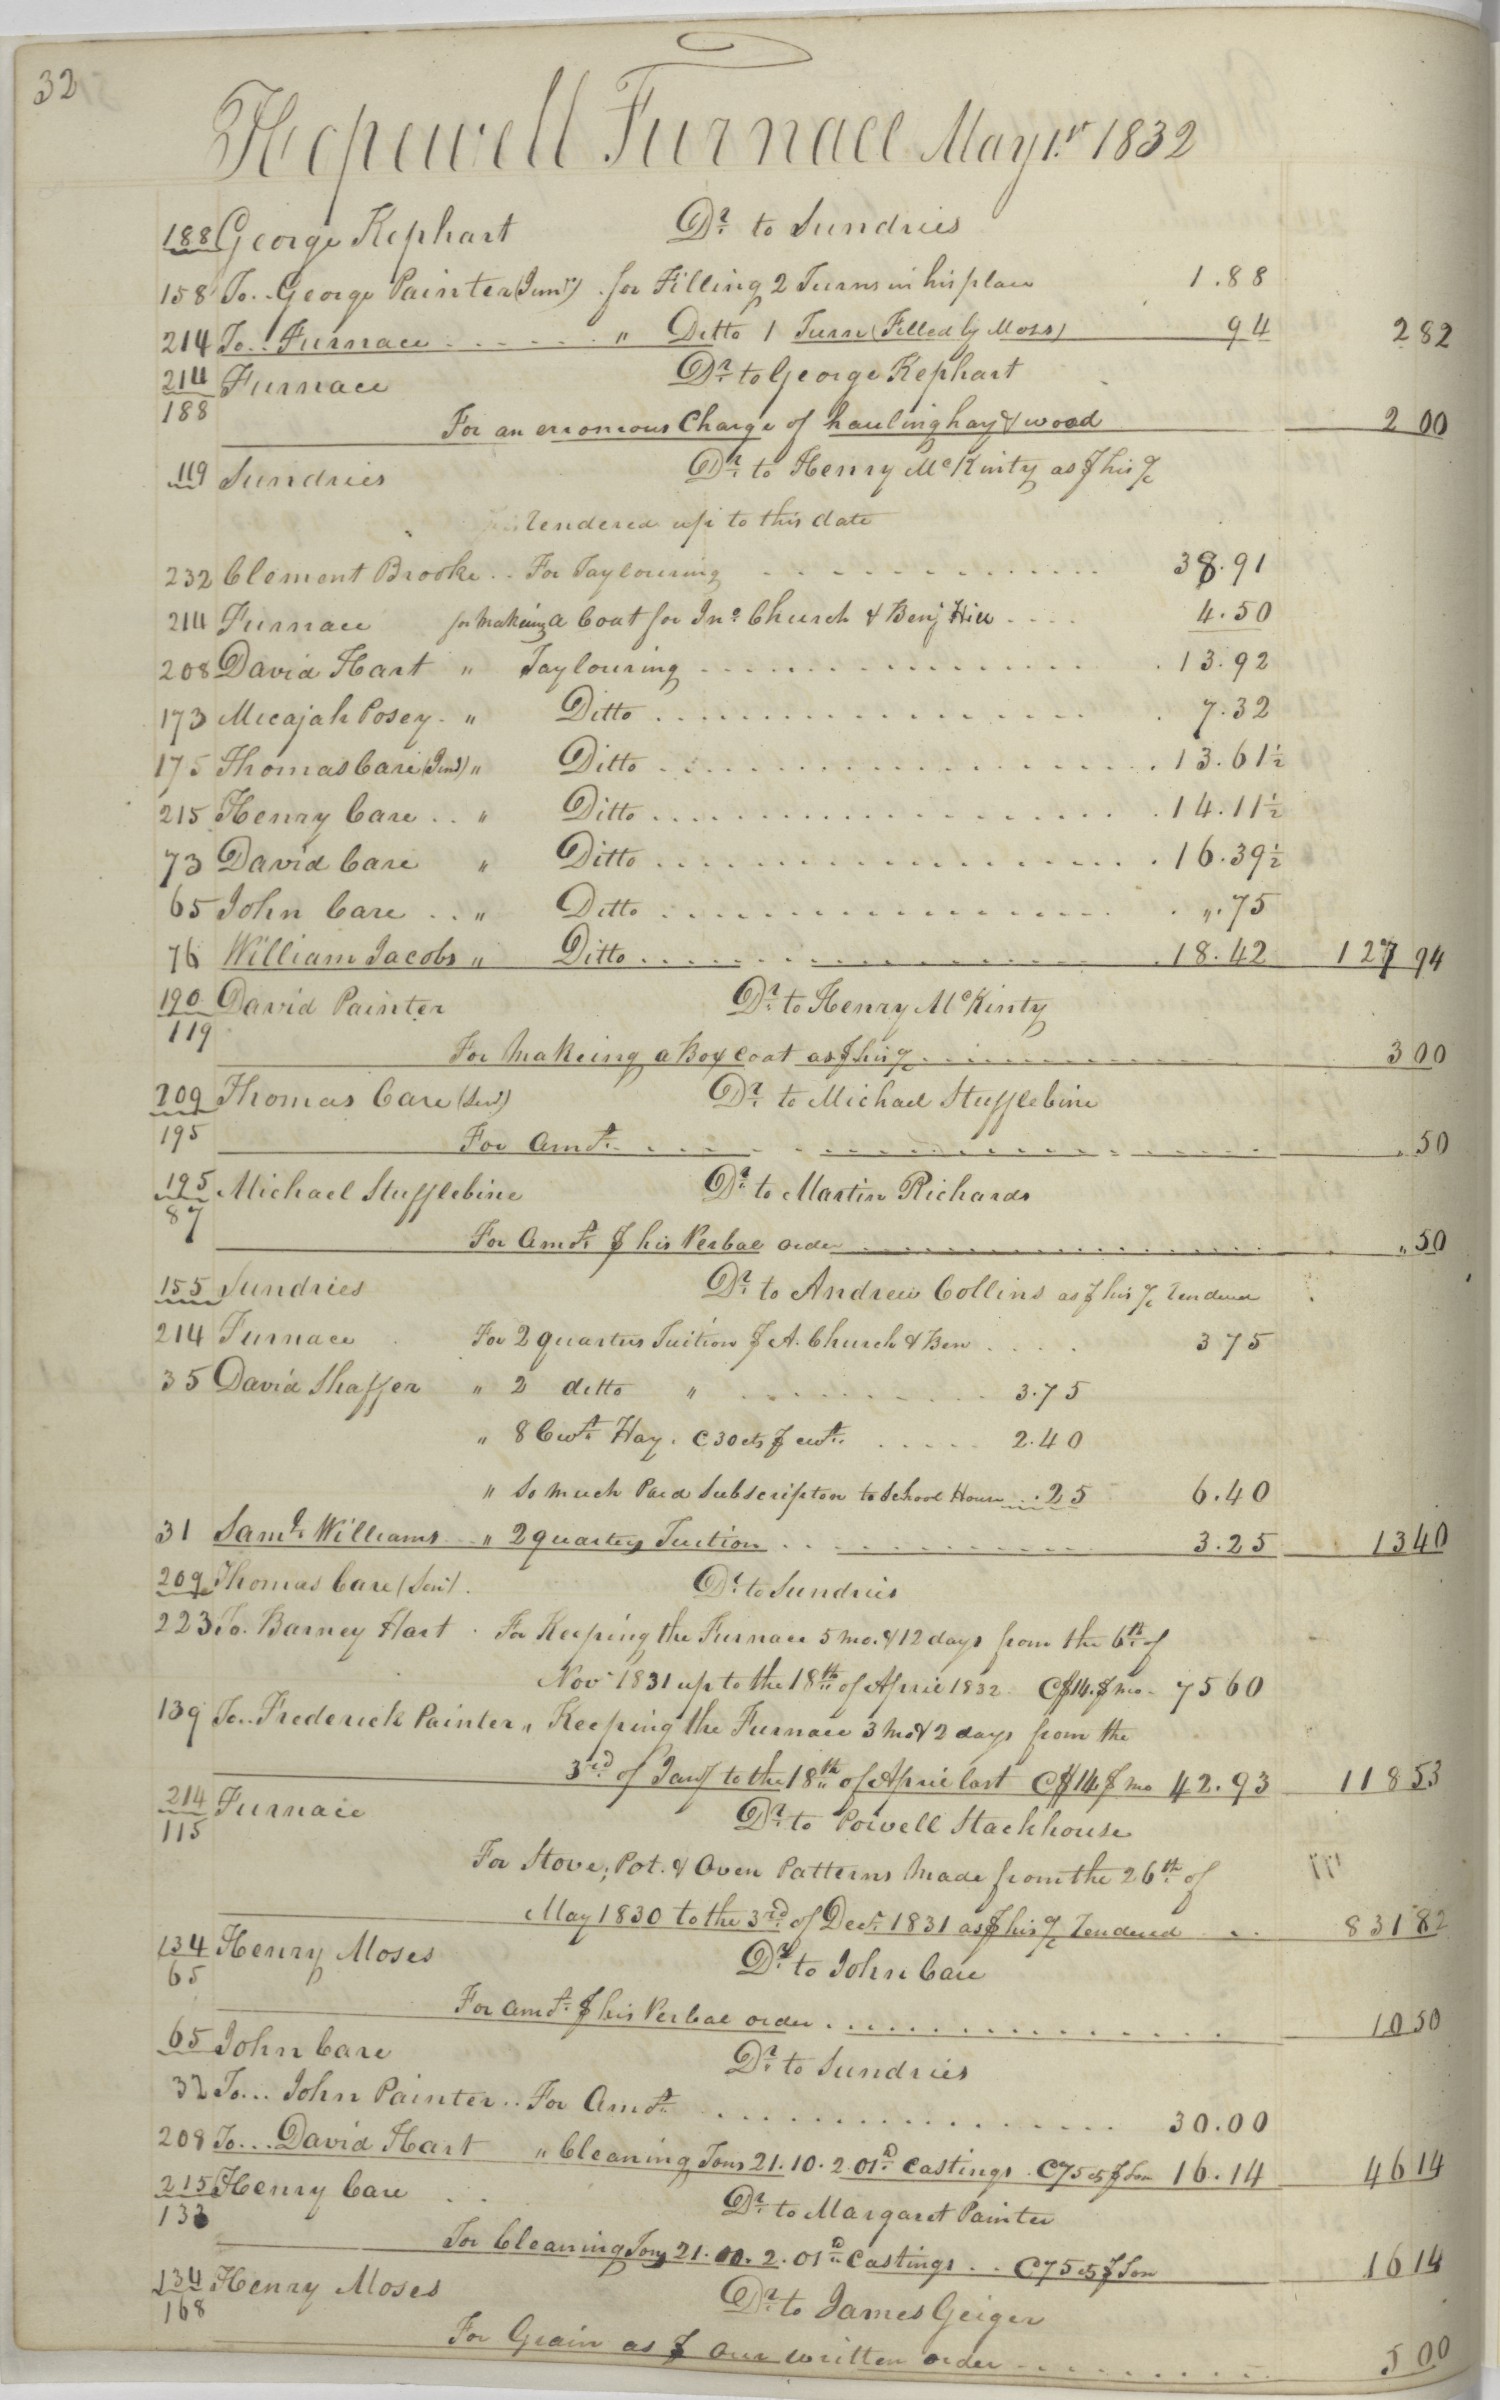 32
Hopewell Furnace May 1st 1832
188 George Kephart Dr. to Sundries
158 To.. George Painter (Junr) for Filling 2 Turns in his place 1.88
214 To.. Furnace . . . . . . " Ditto 1 Turn (Filled by Moss) 94 2 82
214 Furnace Dr. to George Kephart
188
For an erroneous Charge of hauling hay & wood 2 00
119 Sundries Dr. to Henry McKinty as ⅌ his a/c
rendered up to this date
232 Clement Brooke .. For Taylouring . . . . . . 38.91
214 Furnace for makeing a Coat for Jno. Church & Benj Hill . . . . 4.50
208 David Hart " Taylouring . . . . . . 13.92
173 Micajah Posey . " Ditto . . . . . . 7.32
175 Thomas Care (Junr) " Ditto . . . . . . 13.61½
215 Henry Care .. " Ditto . . . . . . 14.11½
73 David Care " Ditto . . . . . . 16.39½
65 John Care .. " Ditto . . . . . . ".75
76 William Jacobs " Ditto . . . . . . 18.42 127 94
190 David Painter Dr. to Henry McKinty
119
For Makeing a Box Coat as ⅌ his a/c . . . . . . 3 00
209 Thomas Care (Senr) Dr. to Michael Stufflebine
195
For Amt. . . . . . . " 50
195 Michael Stufflebine Dr. to Martin Richards
87
For Amt. ⅌ his Verbal order . . . . . . " 50
155 Sundries Dr. to Andrew Collins as ⅌ his a/c rendered
214 Furnace For 2 quarters Tuition ⅌ A. Church & Ben . . . . 3 75
35 David Shaffer " 2 ditto " . . . . . . 3.75
" 8 Cwt. Hay . @ 30 cts ⅌ cwt. . . . . . 2.40
" So much Paid Subscription to School House . . . .25 6.40
31 Saml. Williams .. " 2 quarters Tuition . . . . . . 3.25 13 40
209 Thomas Care (Senr) . Dr. to Sundries
223 To. Barney Hart . For Keeping the Furnace 5 mo. & 12 days from the 6th of
Nov 1831 up to the 18th of April 1832 @ $14. ⅌ mo. 75 60
139 To.. Frederick Painter " Keeping the Furnace 3 mo & 2 days from the
3rd of Jany to the 18th of April last @ $14 ⅌ mo 42.93 118 53
214 Furnace Dr. to Powell Stackhouse
115
For Stove, Pot. & Oven Patterns Made from the 26th of
May 1830 to the 3rd of Decr. 1831 as ⅌ his a/c rendered .. 831 82
134 Henry Moses Dr. to John Care
65
For Amt. ⅌ his Verbal order . . . . . . 10 50
65 John Care Dr. to Sundries
32 To... John Painter .. For Amt. . . . . . . 30.00
208 To... David Hart " Cleaning Tons 21.10.2.01 lb Castings . @ 75 cts ⅌ Ton 16.14 46 14
215 Henry Care . . Dr. to Margaret Painter
133
For Cleaning Tons 21.10.2.01 lb Castings .. @ 75 cts ⅌ Ton 16 14
134 Henry Moses Dr. to James Geiger
168
For Grain as ⅌ our written order . . . . . . 5 00